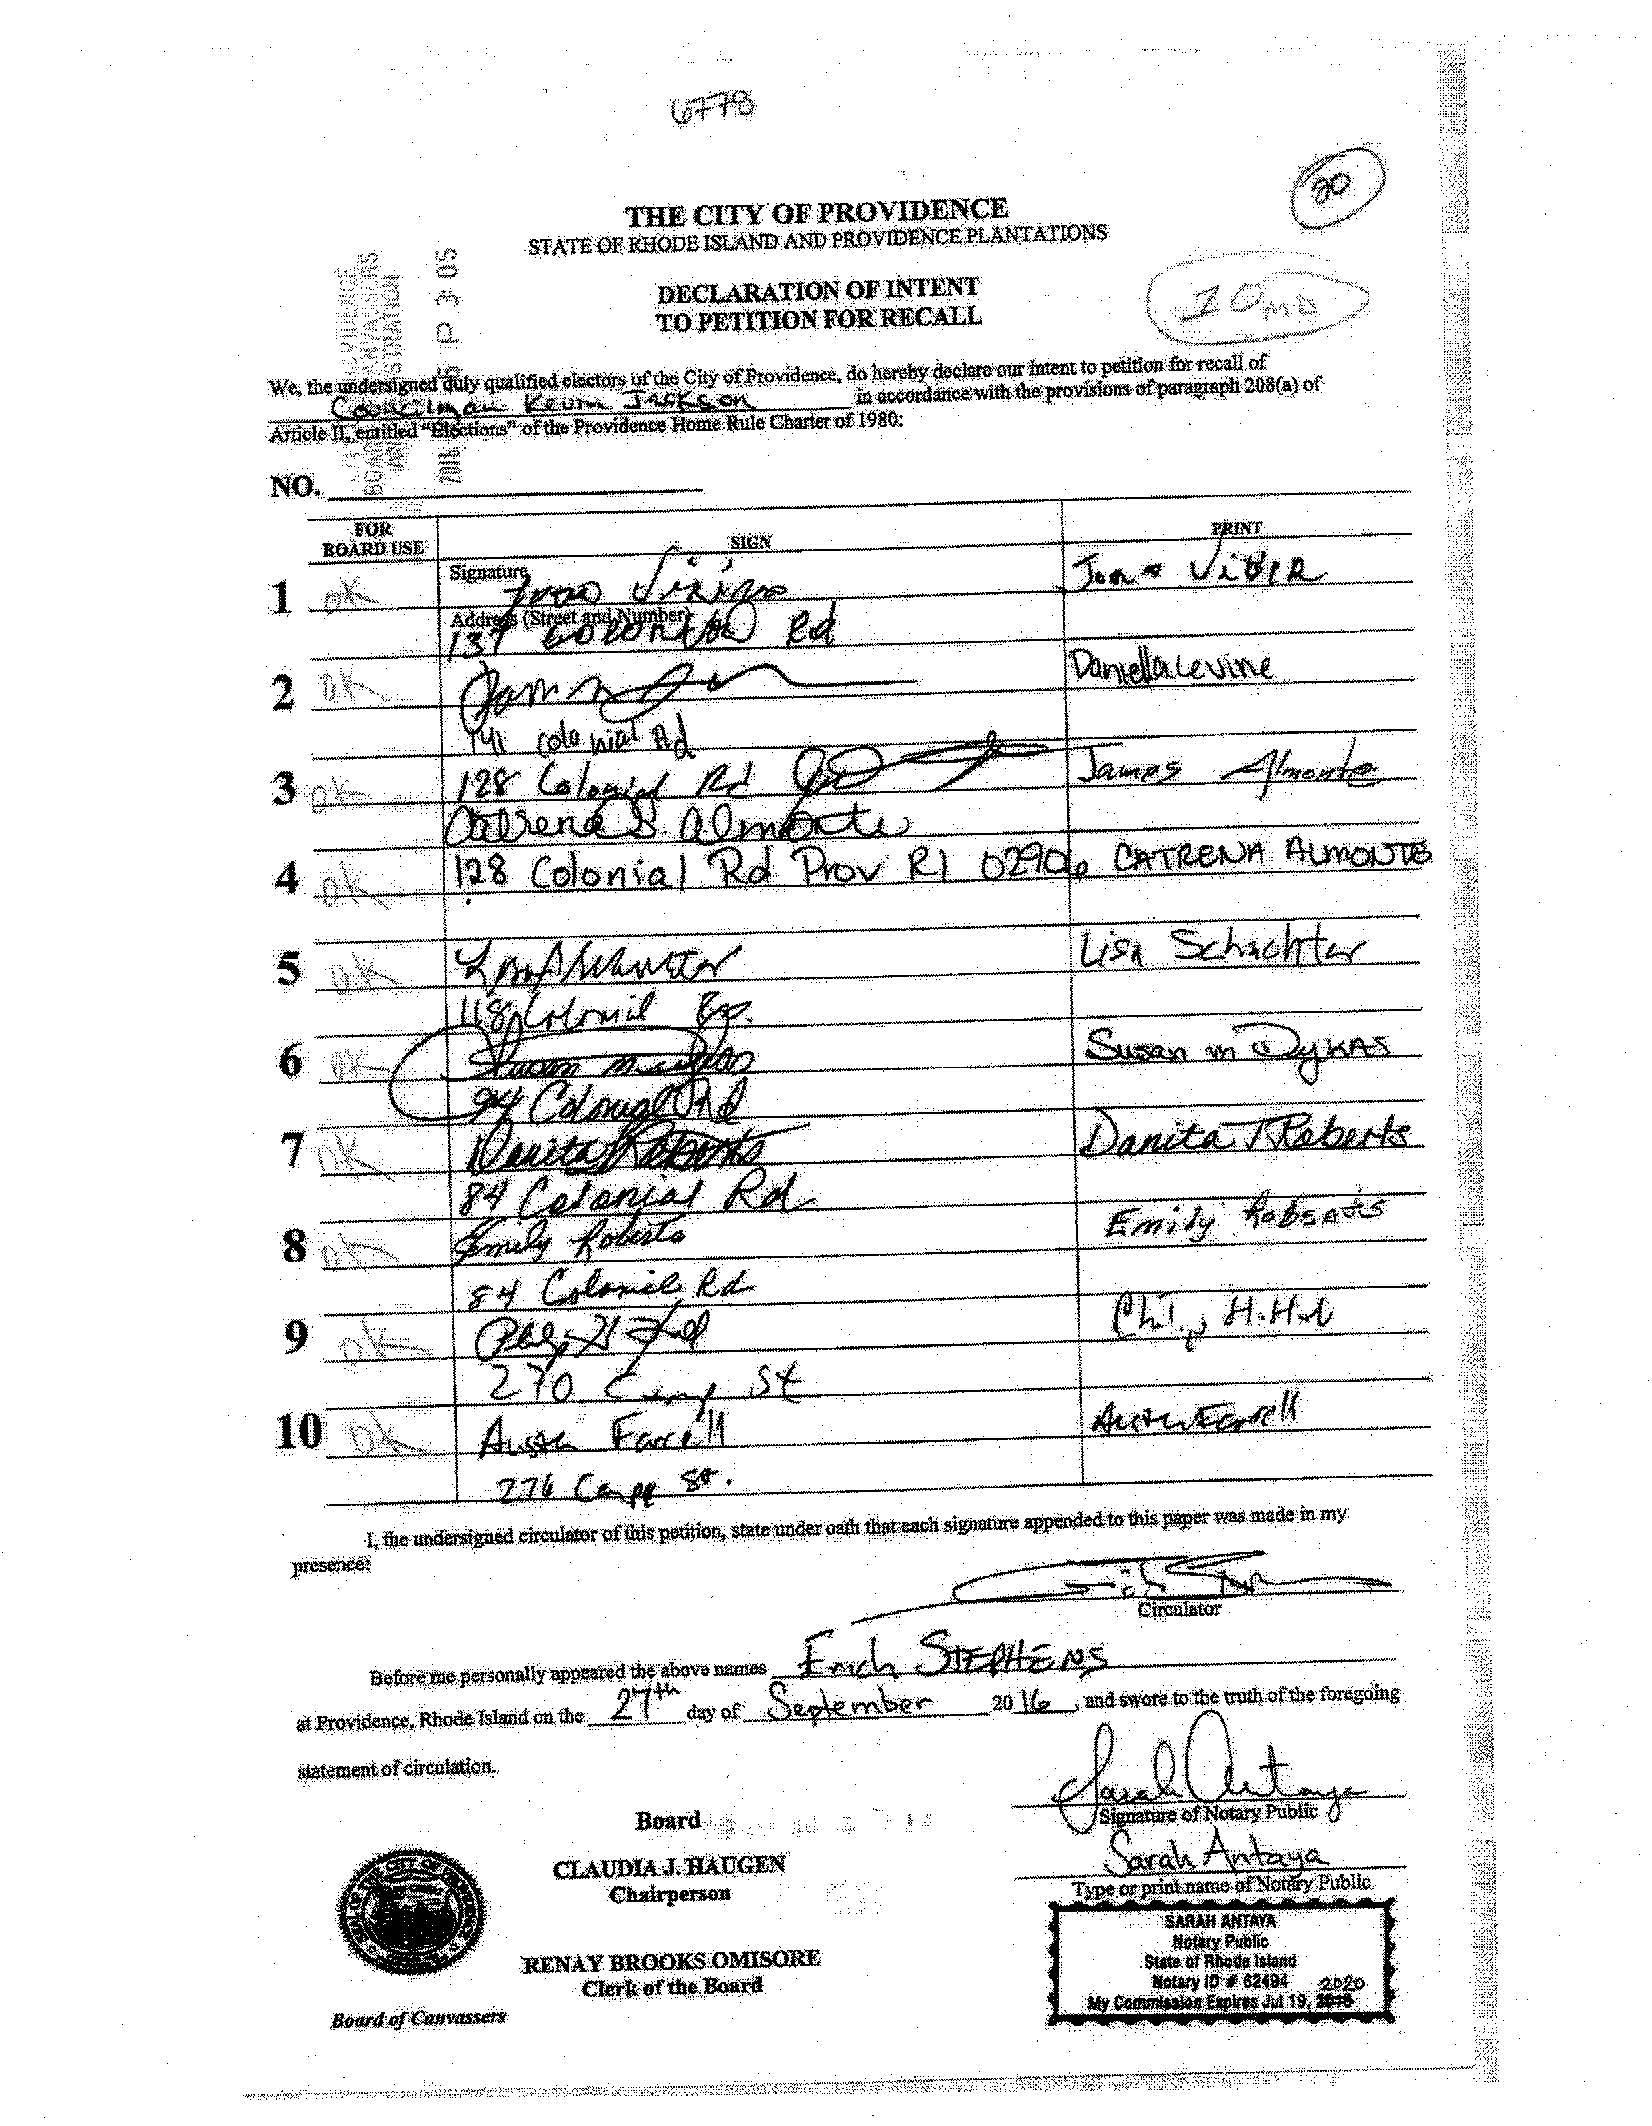 6778
20
THE CITY OF PROVIDENCE
STATE OF RHODE ISLAND AND PROVIDENCE PLANTATIONS
P 3:05
DECLARATION OF INTENT
TO PETITION FOR RECALL
We, the undersigned duly qualified electors of the City of Providence, do hereby declare our intent to petition for recall of
Councilman Kevin Jackson in accordance with the provisions of paragraph 208(a) of
Article II, entitled "Elections" of the Providence Home Rule Charter of 1980:
NO.
FOR BOARD USE SIGN PRINT
Signature
1 OK
Address (Street and Number)
137 Colonial Rd
2 OK Daniella Levine
141 Colonial Rd
3 OK 128 Colonial Rd James Almonte
Catrena B Almonte
4 OK 128 Colonial Rd Prov RI 02906 CATRENA ALMONTE
5 OK Lisa Schachter
118 Colonial
6 OK Susan M Dykas
94 Colonial Rd
7 OK Danita Roberts Danita T Roberts
84 Colonial Rd
8 OK Emily Roberts Emily Roberts
84 Colonial Rd
9 OK
270 Camp St
10 OK Austin Farrell Austin Farrell
276 Camp St.
I, the undersigned circulator of this petition, state under oath that each signature appended to this paper was made in my
presence:
Circulator
Before me personally appeared the above names Erich STEPHENS
at Providence, Rhode Island on the 27th day of September 2016, and swore to the truth of the foregoing
statement of circulation.
Sarah Antaya
Signature of Notary Public
Board
Sarah Antaya
Type or print name of Notary Public
CLAUDIA J. HAUGEN
Chairperson
RENAY BROOKS OMISORE
Clerk of the Board
Board of Canvassers
SARAH ANTAYA
Notary Public
State of Rhode Island
Notary ID # 62494
2020
My Commission Expires Jul 19,